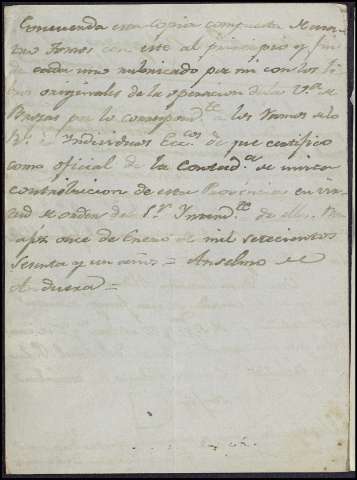 Concuerda esta copia compuesta de
tomos con este al principio y fin
de cada uno rubricado por mi con los li
originales de la operacion de la V.ª de
Brozas por lo correspond.te a los Ramos de lo
R.l é Individuos Ecc.cos de que certifico
como oficial de la Contad.a de unica
contribucion de esta Provincia en vir
tud de orden del S.r Intend.te de ella. Ba
dajoz once de Enero de mil setecientos
Sesenta y un años = Anselmo de
Anduexa =